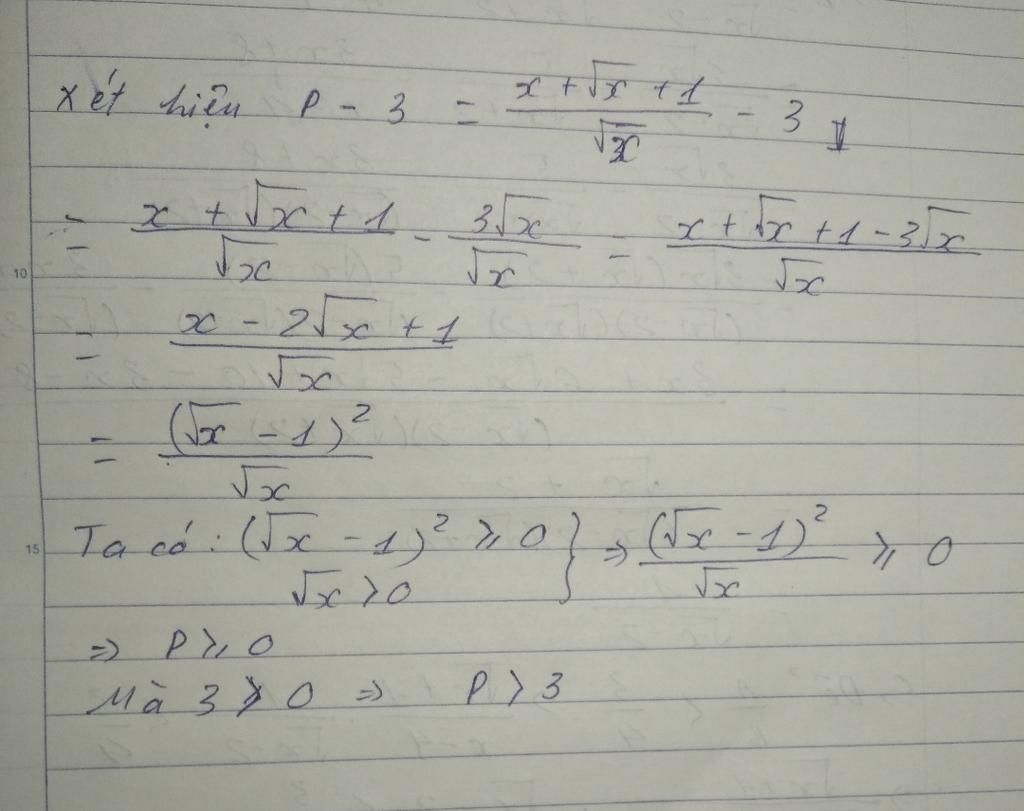 Xét hiệu P - 3 = \frac{x + \sqrt{x} + 1}{\sqrt{x}} - 3
= \frac{x + \sqrt{x} + 1}{\sqrt{x}} - \frac{3\sqrt{x}}{\sqrt{x}} = \frac{x + \sqrt{x} + 1 - 3\sqrt{x}}{\sqrt{x}}
10
= \frac{x - 2\sqrt{x} + 1}{\sqrt{x}}
= \frac{(\sqrt{x} - 1)^2}{\sqrt{x}}
15
Ta có: (\sqrt{x} - 1)^2 ⩾ 0 } ⇒ \frac{(\sqrt{x} - 1)^2}{\sqrt{x}} ⩾ 0
\sqrt{x} > 0
⇒ P ⩾ 0
Mà 3 > 0 ⇒ P > 3